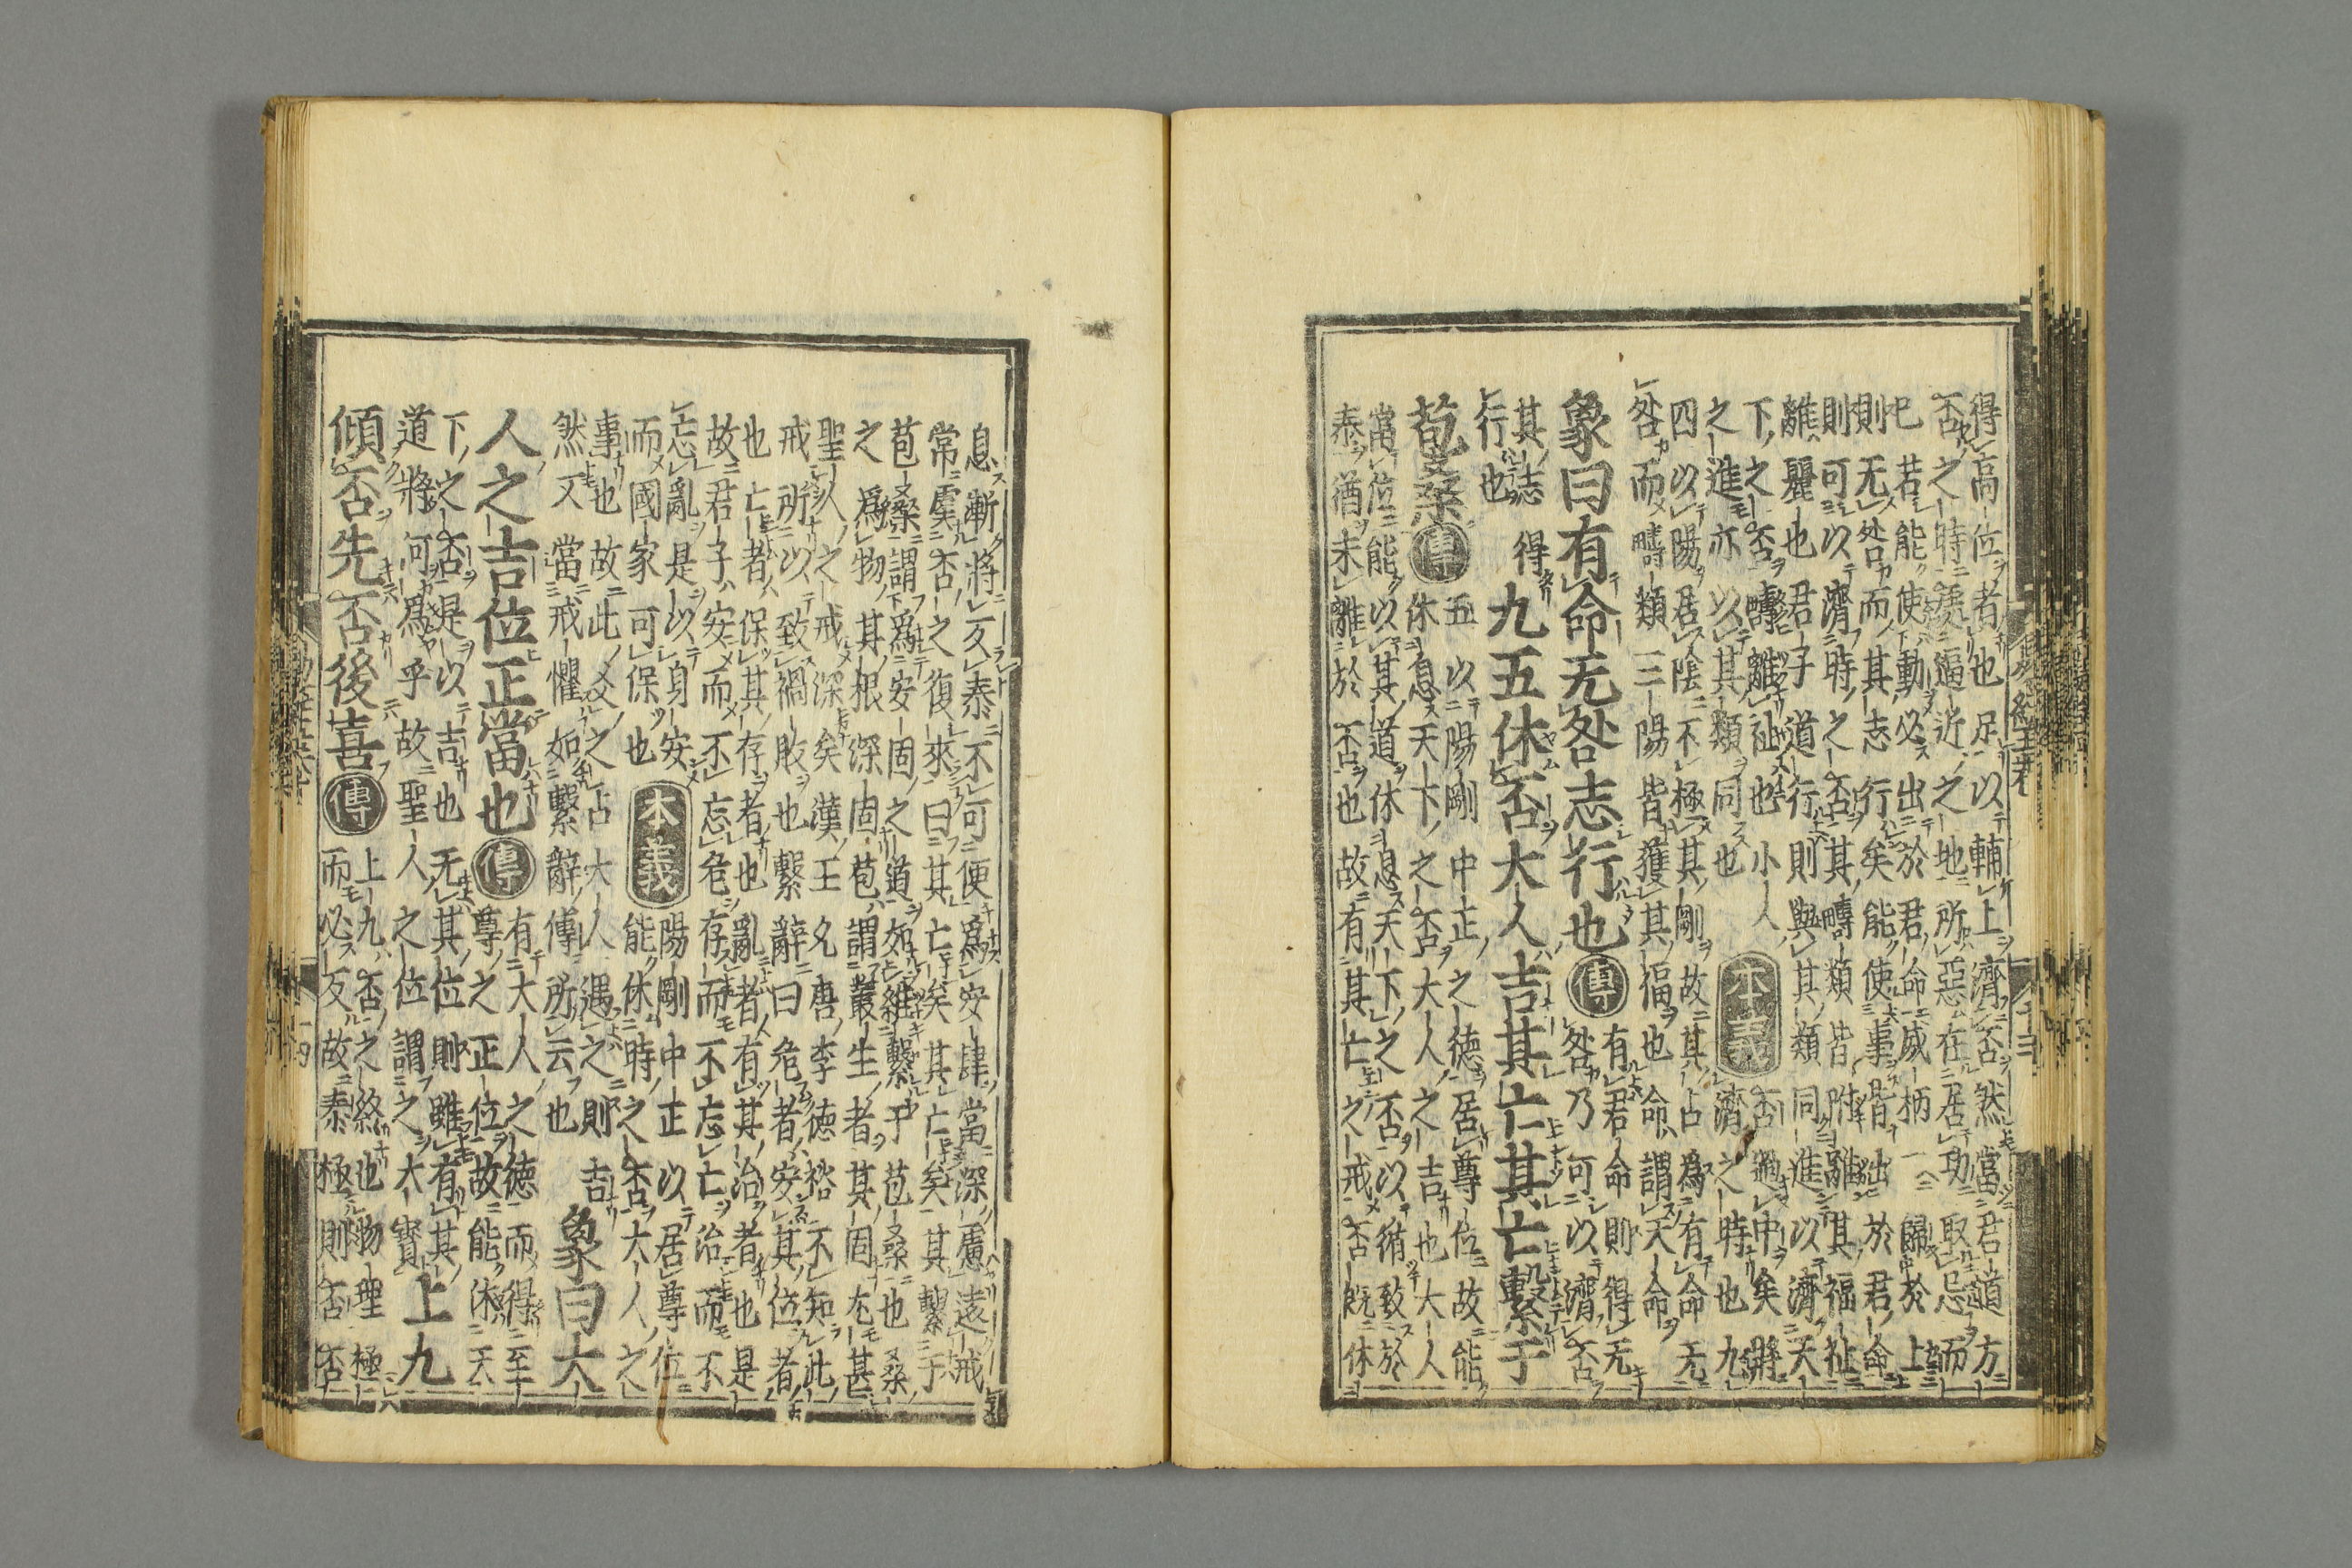 得高位者也足以輔上濟否然當君道方
否之時處逼近之地所惡在居功取忌而
已若能使動必出於君命威柄一歸於上
則无咎而其志行矣能使事皆出於君命
則可以濟時之否其疇類皆附離其福祉
離麗也君子道行則與其類同進以濟天
下之否疇離祉也小人
之進亦以其類同也
本義
否過中矣將
濟之時也九
四以陽居陰不極其剛故其占為有命无
咎而疇類三陽皆獲其福也命謂天命
象曰有命无咎志行也
傳
有君命則得无
咎乃可以濟否
其志得
行也
九五休否大人吉其亡其亡繫于
苞桑
傳
五以陽剛中正之德居尊位故能
休息天下之否大人之吉也大人
當位能以其道休息天下之否以循致於
泰猶未離於否也故有其亡之戒否既休
息漸將反泰不可便為安肆當深慮遠戒
常虞否之復來曰其亡矣其亡矣其繫于
苞桑謂為安固之道如維繫于苞桑也桑
之為物其根深固苞謂叢生者其固尤甚
聖人之戒深矣漢王允唐李德裕不知此
戒所以致禍敗也繫辭曰危者安其位者
也亡者保其存者也亂者有其治者也是
故君子安而不忘危存而不忘亡治而不
忘亂是以身安
而國家可保也
本義
陽剛中正以居尊位
能休時之否大人之
事也故此爻之占大人遇之則吉
然又當戒懼如繫辭傳所云也
象曰大
人之吉位正當也
傳
有大人之德而得至
尊之正位故能休天
下之否是以吉也无其位則雖有其
道將可為乎故聖人之位謂之大寶
上九
傾否先否後喜
傳
上九否之終也物理極
而必反故泰極則否否